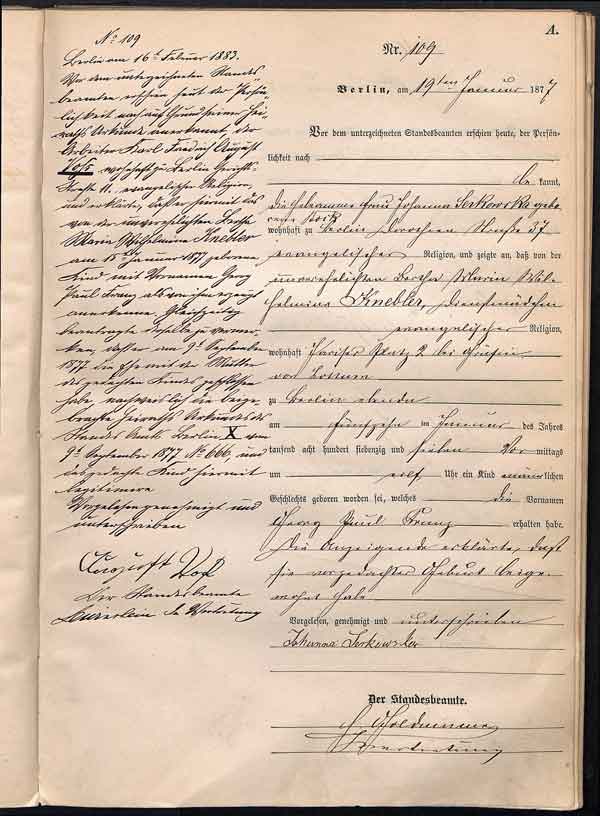 No 109
Berlin am 16t Februar 1883.
Vor dem unterzeichneten Standes-
beamten erschien heut der Persön-
lichkeit nach auf Grund seiner Hei-
raths Urkunde anerkannt, der
Arbeiter Karl Friedrich August
Voss wohnhaft zu Berlin Gericht-
straße 11. evangelischer Religion,
und erklärte, daß er hiermit das
von der unverehelichten Bertha
Maria Wilhelmine Knebler
am 15ten Januar 1877 geborene
Kind mit Vornamen Georg
Paul Franz als von ihm erzeugt
anerkenne. Gleichzeitig
beantragte derselbe zu vermer-
ken, daß er am 9t September
1877 die Ehe mit der Mutter
des gedachten Kindes geschlossen
habe, nachweislich die beige-
brachte Heiraths Urkunde des
Standes Amts Berlin X vom
9t September 1877 No 666, und
das gedachte Kind hiermit
legitimire
Vorgelesen genehmigt und
unterschrieben
August Voß
Der Standesbeamte
In Vertretung
A.
Nr. 109
Berlin, am 19ten Januar 1877
Vor dem unterzeichneten Standesbeamten erschien heute, der Persön-
lichkeit nach
bekannt,
die Hebeamme Frau Johanna Serkowska gebo-
rene
wohnhaft zu Berlin Dorotheen Straße 37
evangelischer Religion, und zeigte an, daß von der
unverehelichten Bertha Maria Wil-
helmine Knebler, Dienstmädchen
evangelischer Religion,
wohnhaft Pariser Platz 2 bei Gräfin
von Lottum
zu Berlin ebenda
am fünfzehn ten Januar des Jahres
tausend acht hundert siebenzig und sieben Vor mittags
um elf Uhr ein Kind männlichen
Geschlechts geboren worden sei, welches die Vornamen
Georg Paul Franz erhalten habe.
Die Anzeigende erklärte, daß
sie vorgedachter Geburt beige-
wohnt habe
Vorgelesen, genehmigt und unterschrieben
Johanna Serkowska
Der Standesbeamte.
In Vertretung